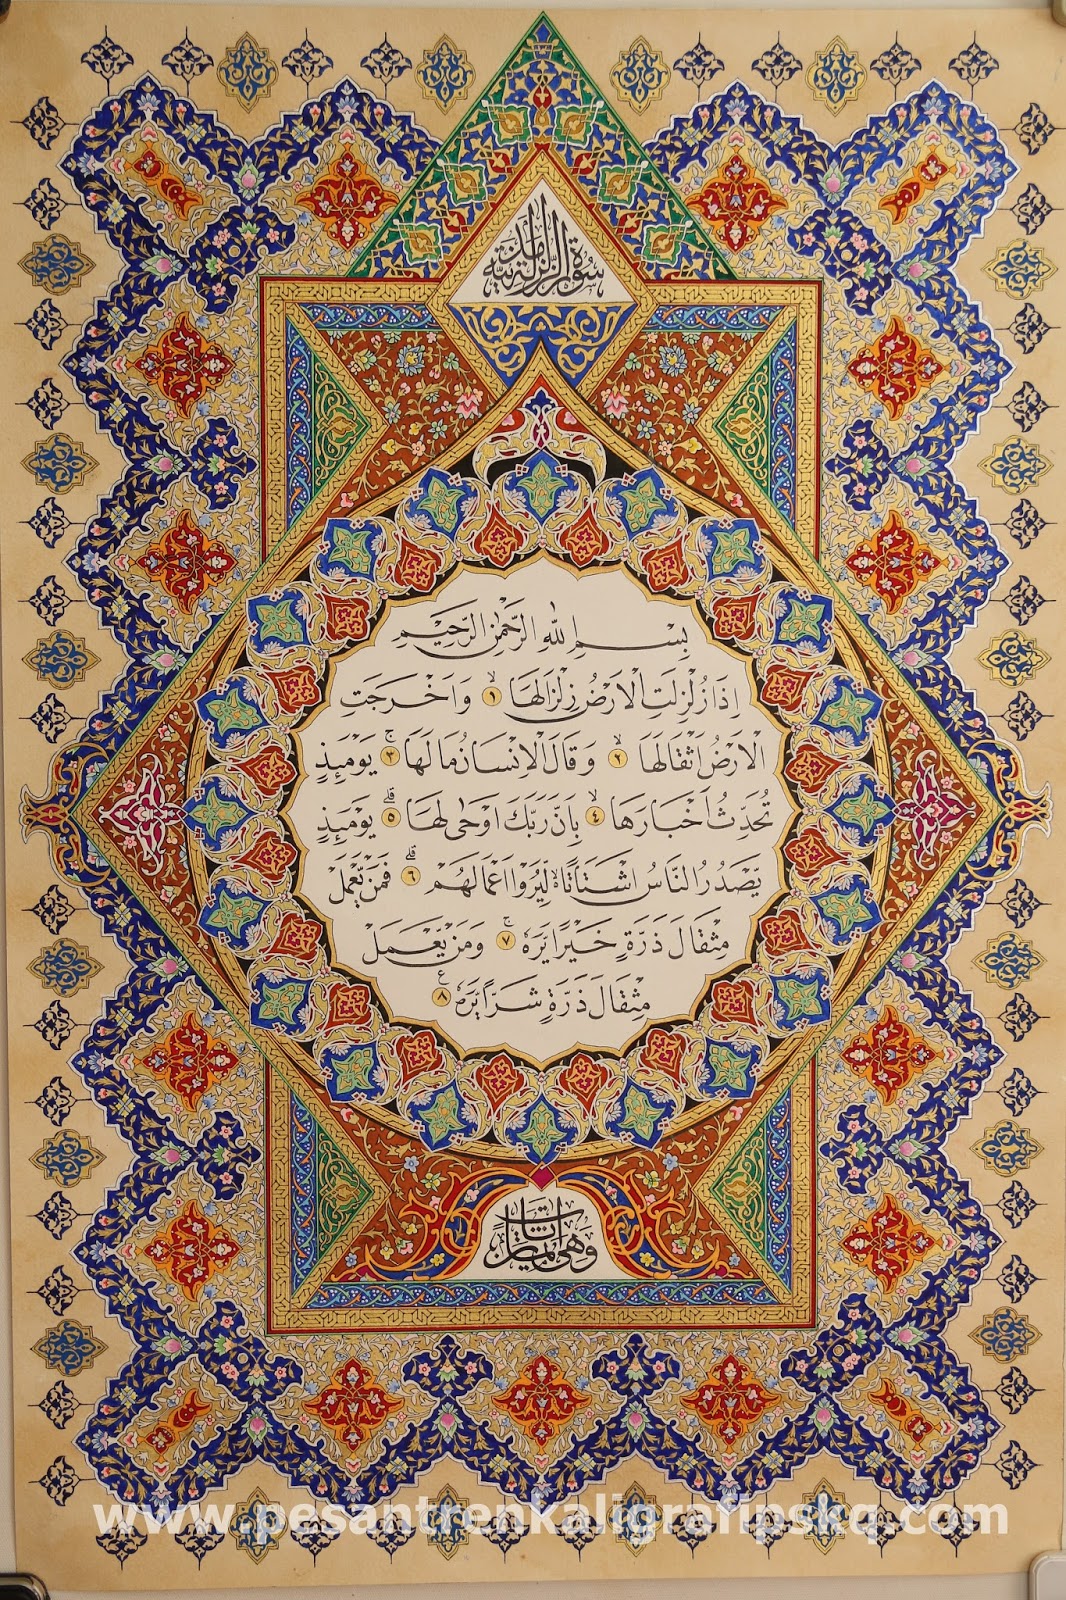 سورة الزلزلة مدنية
بِسْمِ اللهِ الرَّحْمٰنِ الرَّحِيْمِ
اِذَا زُلْزِلَتِ الْاَرْضُ زِلْزَالَهَا ۙ ١ وَاَخْرَجَتِ
الْاَرْضُ اَثْقَالَهَا ۙ ٢ وَقَالَ الْاِنْسَانُ مَا لَهَا ۚ ٣ يَوْمَئِذٍ
تُحَدِّثُ اَخْبَارَهَا ۙ ٤ بِاَنَّ رَبَّكَ اَوْحٰى لَهَا ۗ ٥ يَوْمَئِذٍ
يَّصْدُرُ النَّاسُ اَشْتَاتًا ەۙ لِّيُرَوْا اَعْمَالَهُمْ ۗ ٦ فَمَنْ يَّعْمَلْ
مِثْقَالَ ذَرَّةٍ خَيْرًا يَّرَهٗ ۚ ٧ وَمَنْ يَّعْمَلْ
مِثْقَالَ ذَرَّةٍ شَرًّا يَّرَهٗ ࣖ ٨
وهي ثمان آيات
www.pesantrenkaligrafipskq.com